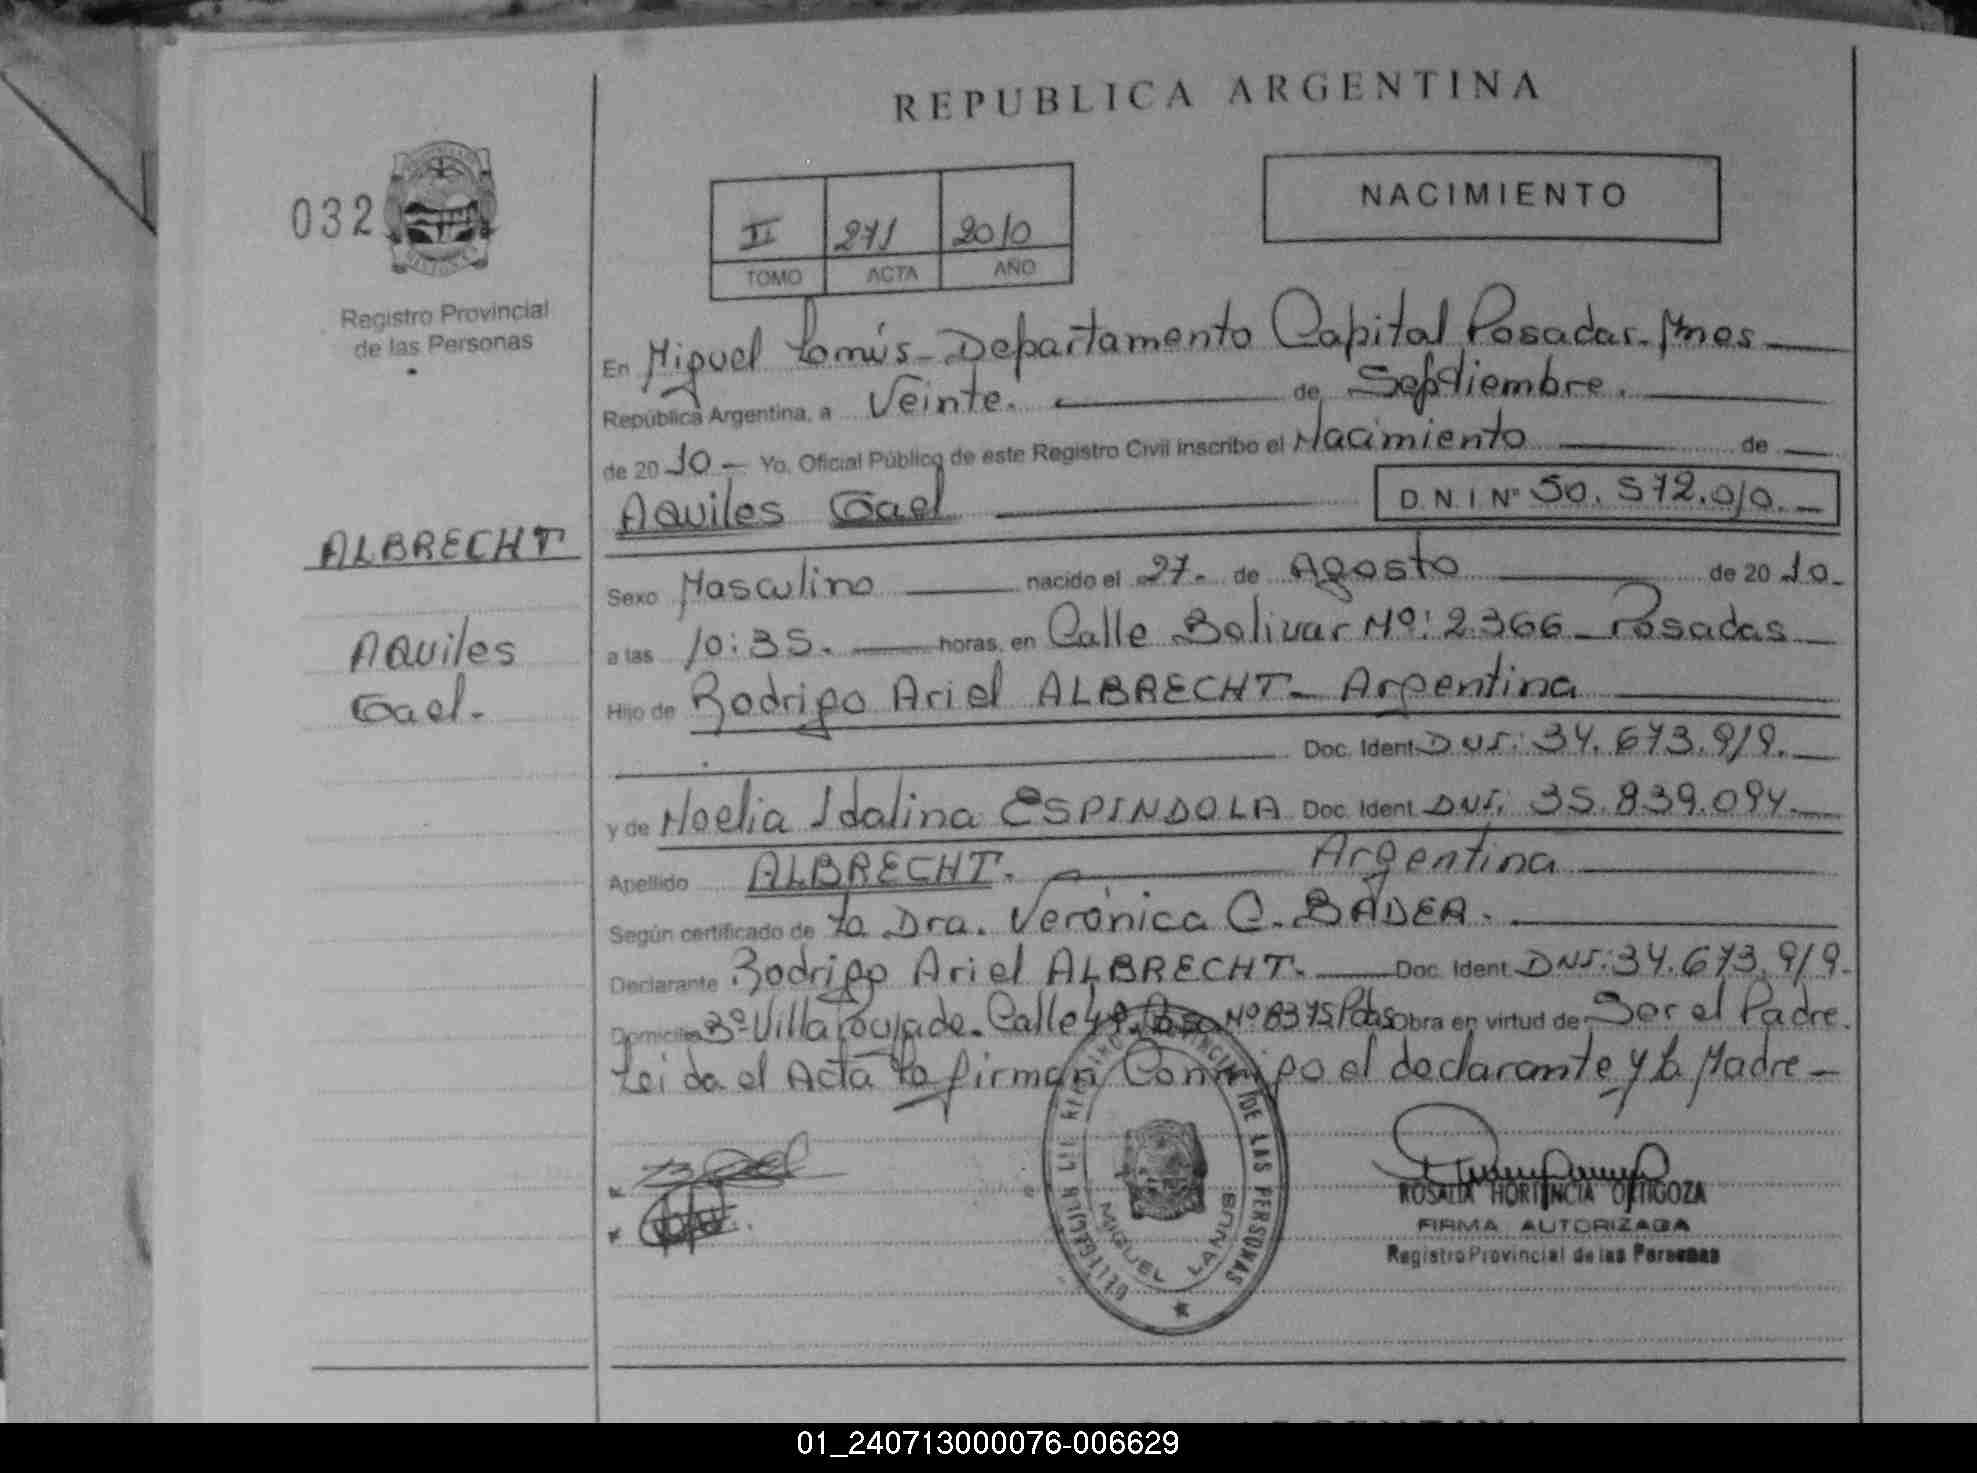 REPUBLICA ARGENTINA
032
NACIMIENTO
II 271 2010
TOMO ACTA AÑO
Registro Provincial
de las Personas
En Miguel Lanús - Departamento Capital Posadas - Mnes
República Argentina, a Veinte. de Septiembre.
de 20 10 - Yo, Oficial Público de este Registro Civil inscribo el Nacimiento de
Aquiles Gael D.N.I Nº 50.572.010.
ALBRECHT
Aquiles
Gael.-
Sexo Masculino nacido el 27. de Agosto de 20 10.
a las 10:35. horas, en Calle Bolivar Nº: 2366 - Posadas
Hijo de Rodrigo Ariel ALBRECHT - Argentina
Doc. Ident. DNI: 34.673.919.
y de Noelia Idalina ESPINDOLA Doc. Ident. DNI: 35.839.094.
Apellido ALBRECHT. Argentina
Según certificado de La Dra. Verónica C. BADER.
Declarante Rodrigo Ariel ALBRECHT. Doc. Ident. DNI: 34.673.919.
Domicilio Bº Villa Calle Nº 8375 Pdas Obra en virtud de Ser el Padre.
Leida el Acta La firman Conmigo el declarante y la Madre -
REGISTRO PROVINCIAL DE LAS PERSONAS
MIGUEL LANUS
ROSALIA HORTENCIA ORTIGOZA
FIRMA AUTORIZADA
Registro Provincial de las Personas
01_240713000076-006629